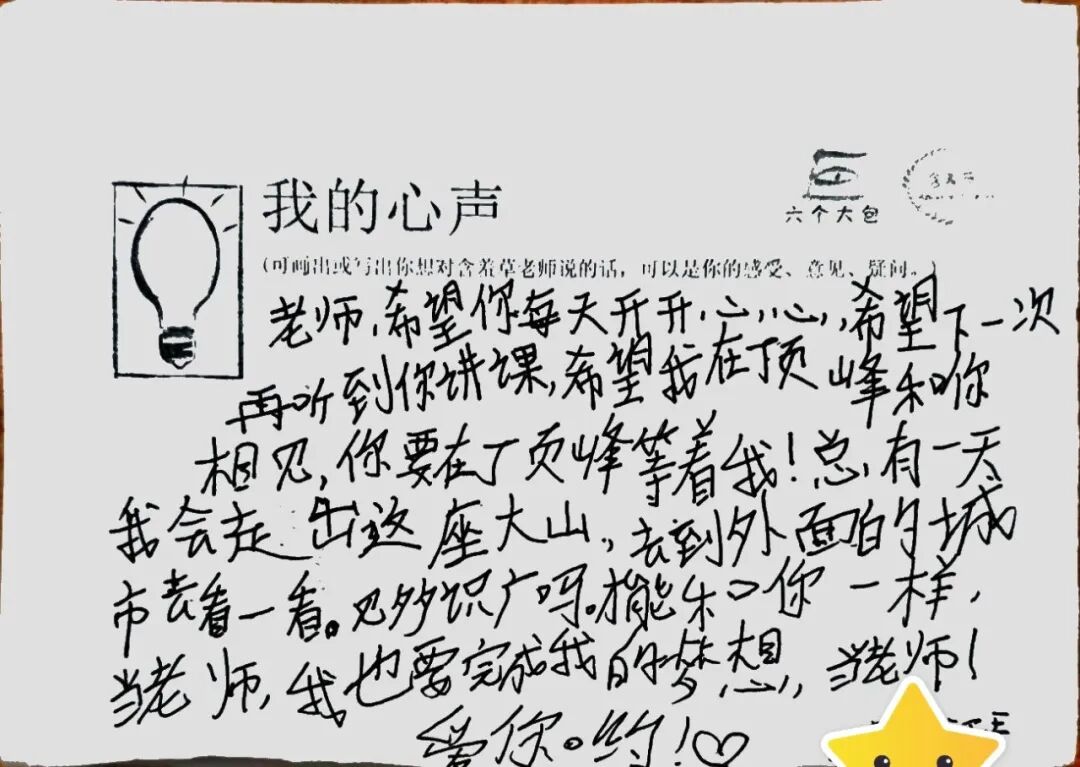 我的心声
六个大包
（可画出或写出你想对含羞草老师说的话，可以是你的感受、意见、疑问。）
老师,希望你每天开开心心,希望下一次
再听到你讲课,希望我在顶峰和你
相见,你要在顶峰等着我!总有一天
我会走出这座大山,去到外面的城
市去看一看。见多识广吗。才能和你一样,
当老师,我也要完成我的梦想,当老师!
爱你。约!♡